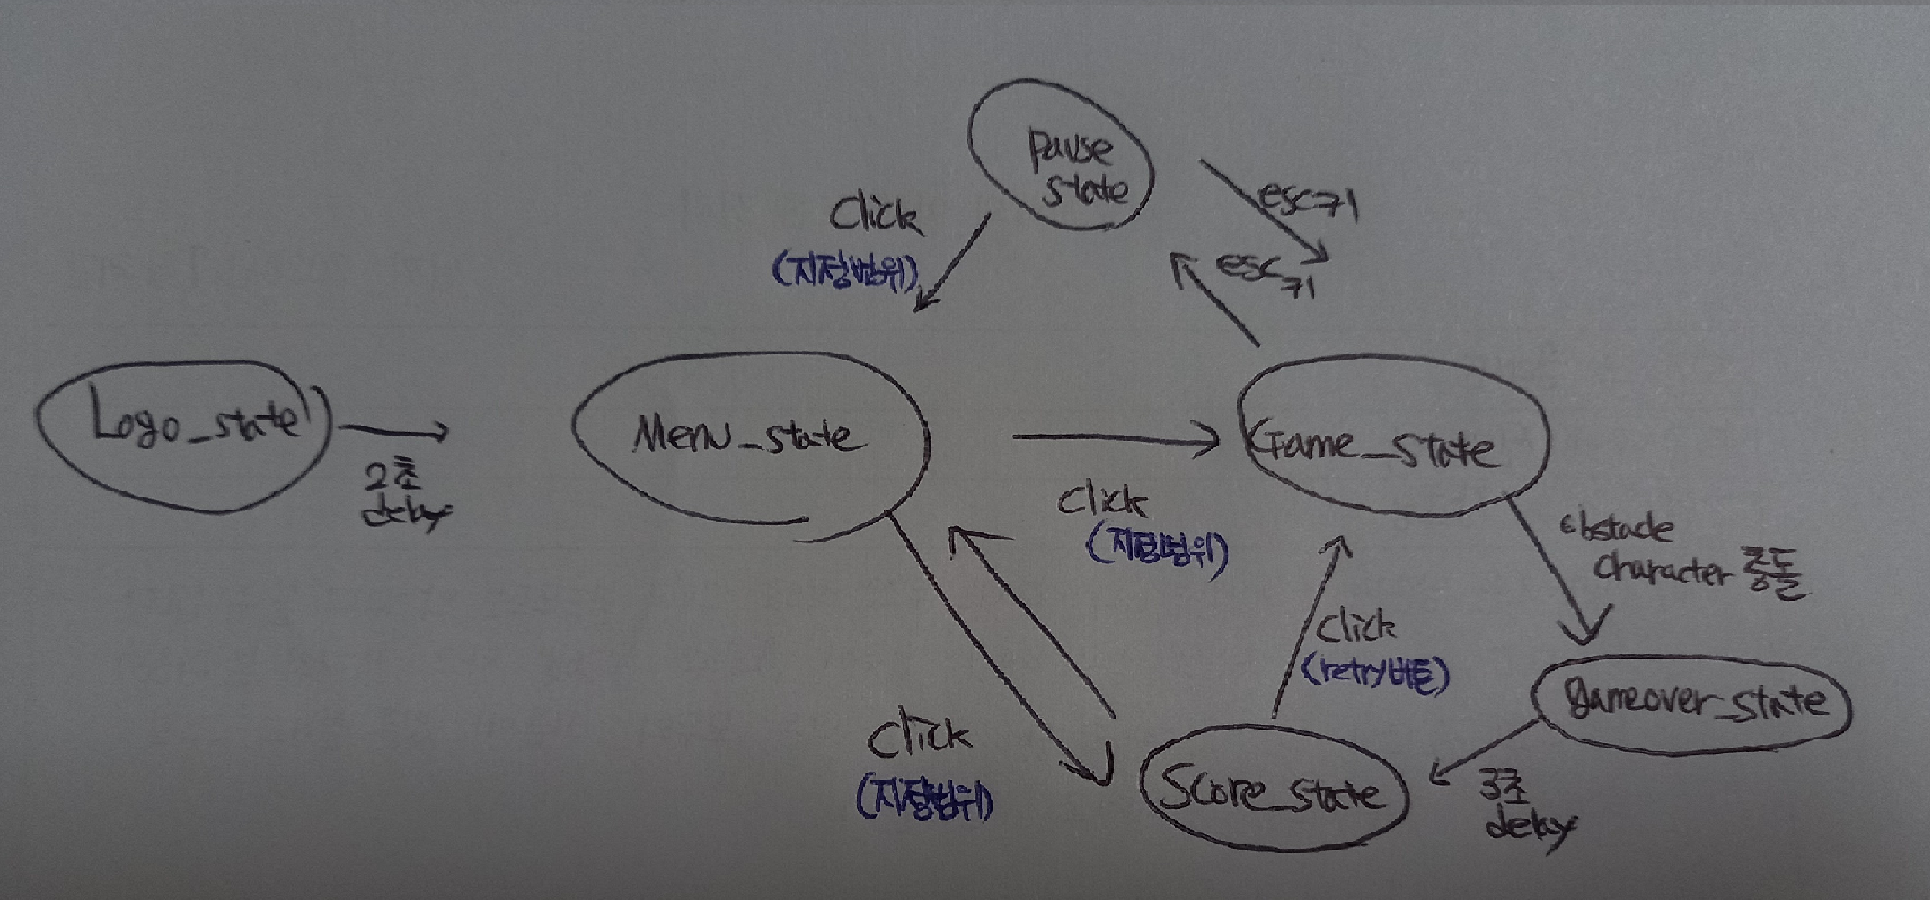 Pause
state
Click
(지정범위)
esc키
esc키
Logo_state
2초
delay
Menu_state
Click
(지정범위)
Game_state
obstacle
character 충돌
Click
(retry버튼)
Gameover_state
Click
(지정범위)
Score_state
3초
delay